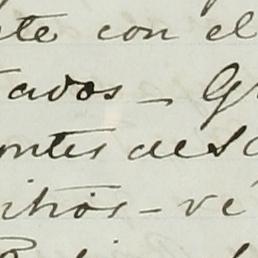 te con el
tados - G
ontes des
itios - vé